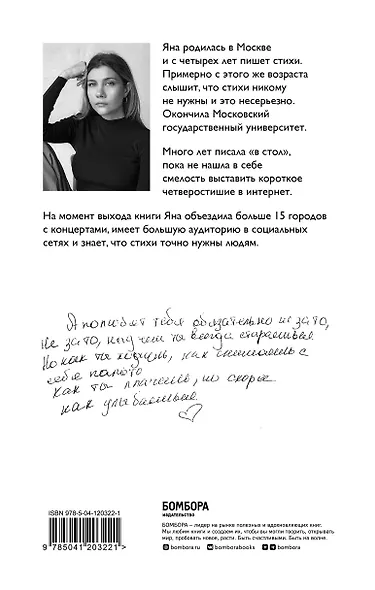 Яна родилась в Москве
и с четырех лет пишет стихи.
Примерно с этого же возраста
слышит, что стихи никому
не нужны и это несерьезно.
Окончила Московский
государственный университет.
Много лет писала «в стол»,
пока не нашла в себе
смелость выставить короткое
четверостишие в интернет.
На момент выхода книги Яна объездила больше 15 городов
с концертами, имеет большую аудиторию в социальных
сетях и знает, что стихи точно нужны людям.
А полюбят тебя обязательно не за то,
Не за то, над чем ты всегда старалась
Но как ты
себя пальто
Как ты плачешь, но скорее
как улыбаешься
ISBN 978-5-04-120322-1
9785041203221>
БОМБОРА
ИЗДАТЕЛЬСТВО
БОМБОРА – лидер на рынке полезных и вдохновляющих книг.
Мы любим книги и создаем их, чтобы вы могли творить, открывать
мир, пробовать новое, расти. Быть счастливыми. Быть на волне.
bombora.ru bomborabooks bombora